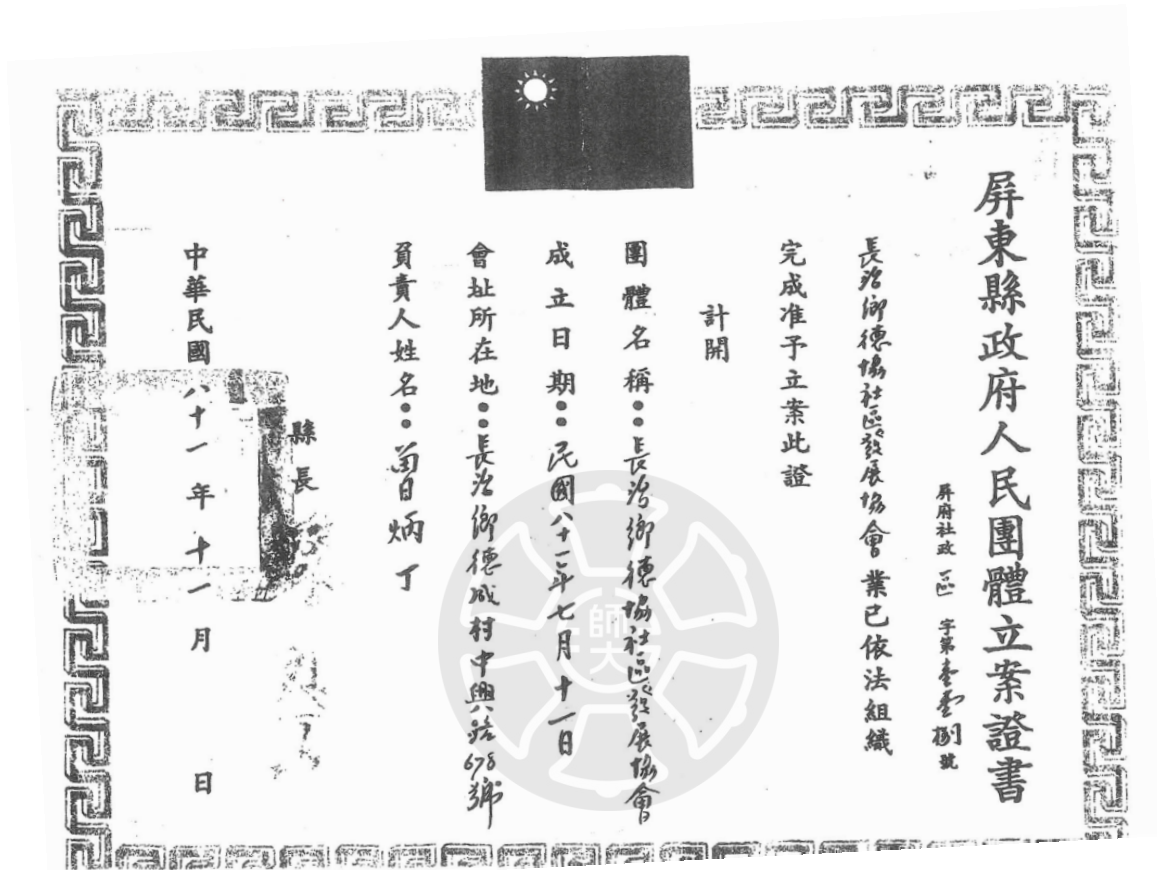 屏東縣政府人民團體立案證書
屏府社政 區 字第壹壹捌號
長治鄉德協社區發展協會業已依法組織
完成准予立案此證
計開
團體名稱：長治鄉德協社區發展協會
成立日期：民國八十一年七月十一日
會址所在地：長治鄉德成村中興路678號
負責人姓名：曾炳丁
縣長
中華民國八十一年十一月 日
師大